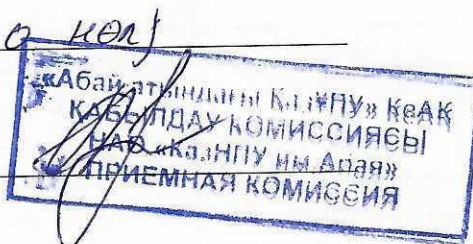 о нөл)
«Абай атындағы ҚазҰПУ» КеАҚ
ҚАБЫЛДАУ КОМИССИЯСЫ
НАО «КазНПУ им.Абая»
ПРИЕМНАЯ КОМИССИЯ